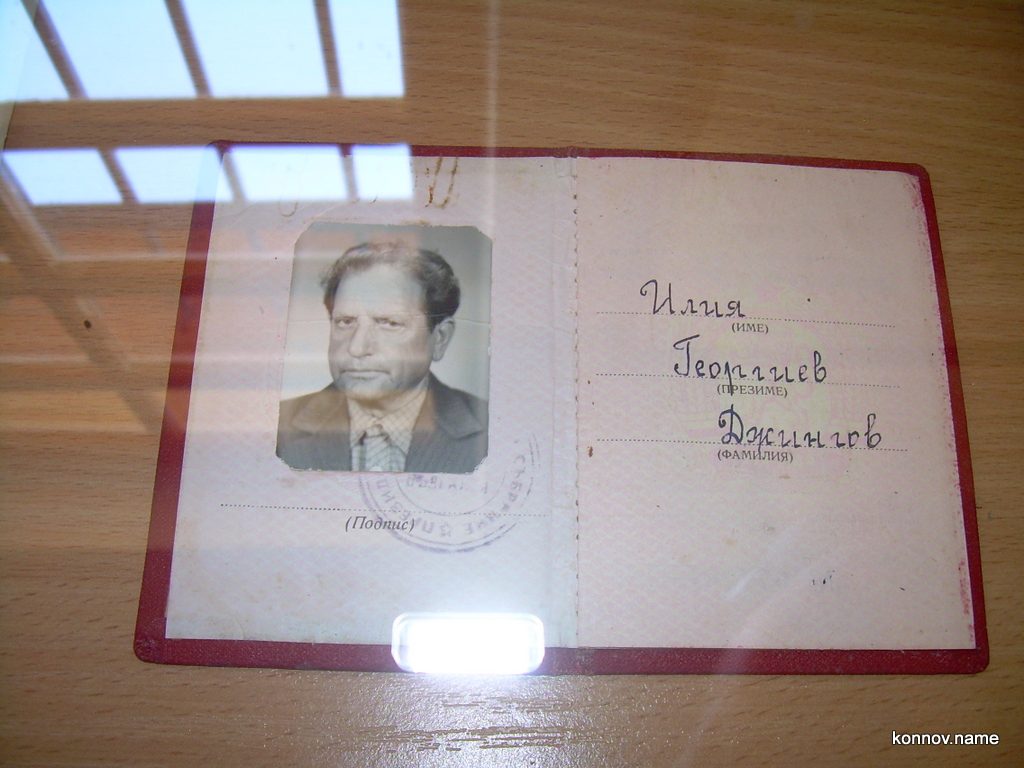 (Подпис)
Илия
(ИМЕ)
Георгиев
(ПРЕЗИМЕ)
Джингов
(ФАМИЛИЯ)
konnov.name